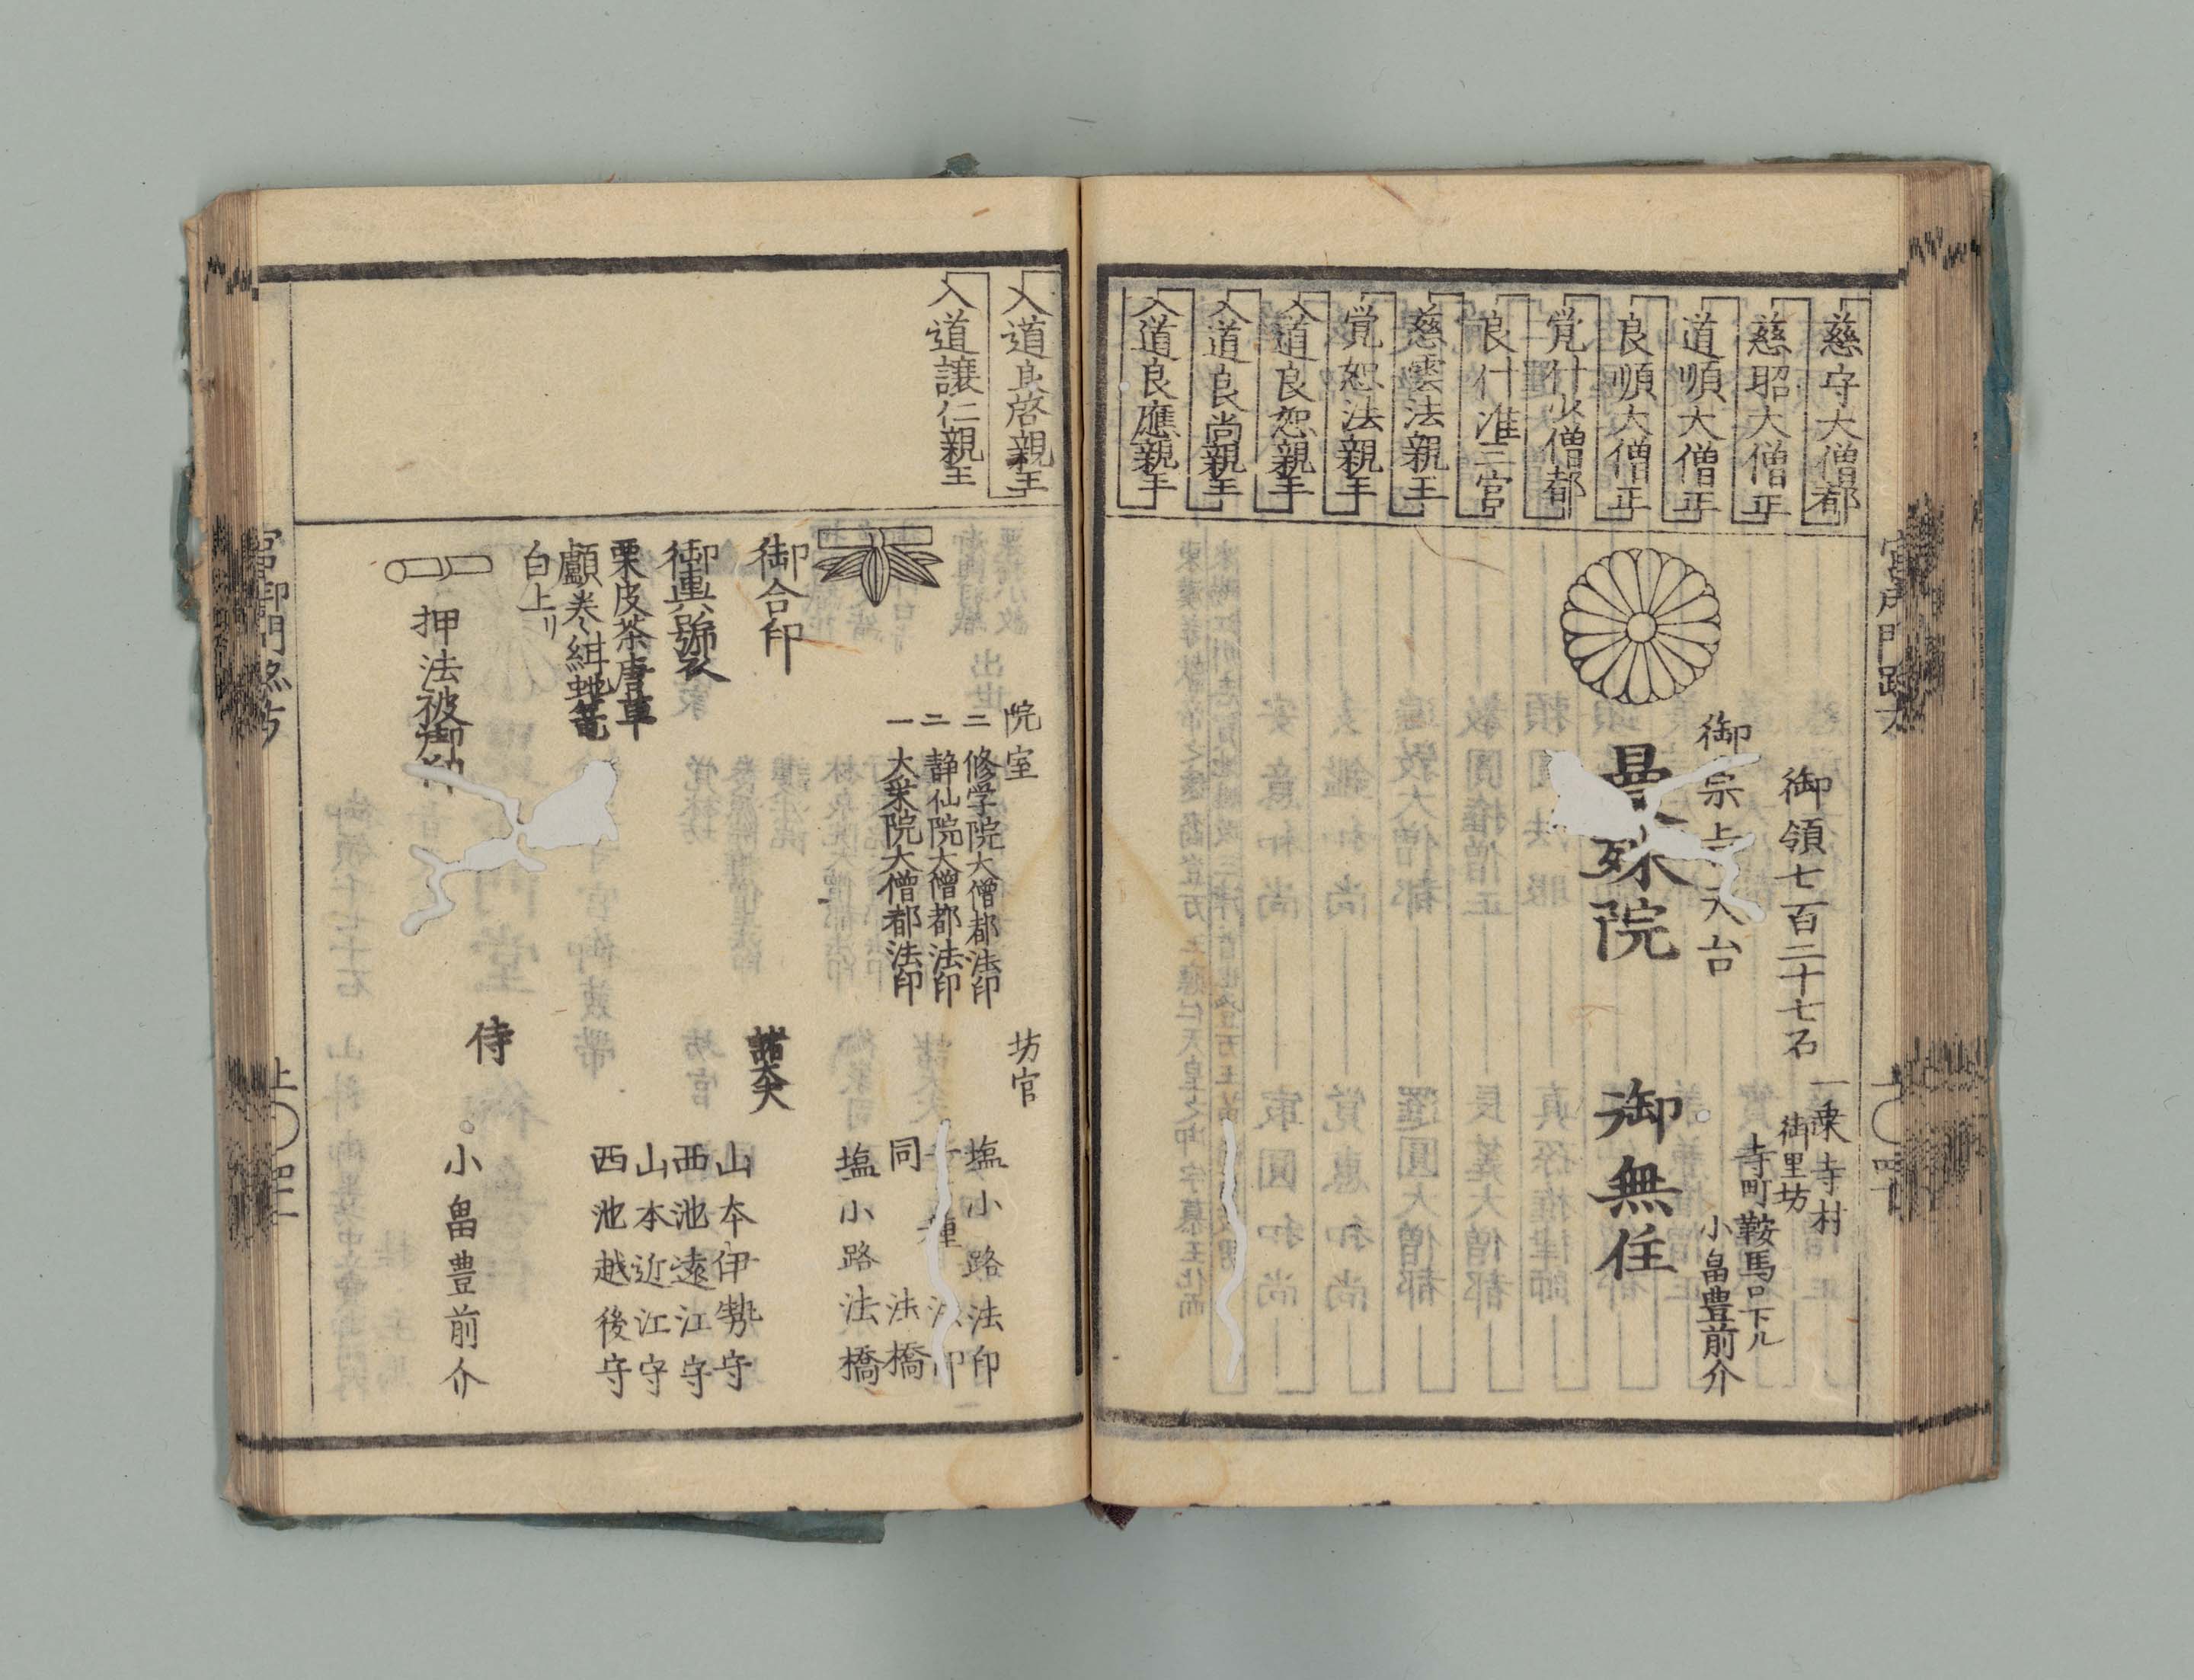 慈守大僧都
慈昭大僧正
道順大僧正
良順大僧正
覚什少僧都
良什准三宮
慈雲法親王
覚恕法親王
入道良恕親王
入道良尚親王
入道良應親王
一乗寺村
御里坊
寺町鞍馬口下ル
小畠豊前介
御領七百二十七石
御宗旨天台
曼殊院
御無住
入道良啓親王
入道譲仁親王
院室
二 修学院大僧都法印
二 静仙院大僧都法印
一 大采院大僧都法印
坊官
塩小路法印
法印
同 法橋
塩小路法橋
御合印
諸大夫
山本伊勢守
西池遠江守
山本近江守
西池越後守
御輿舁
栗皮茶唐草
白上リ
押法被御紋
侍
小畠豊前介
上〇四十一